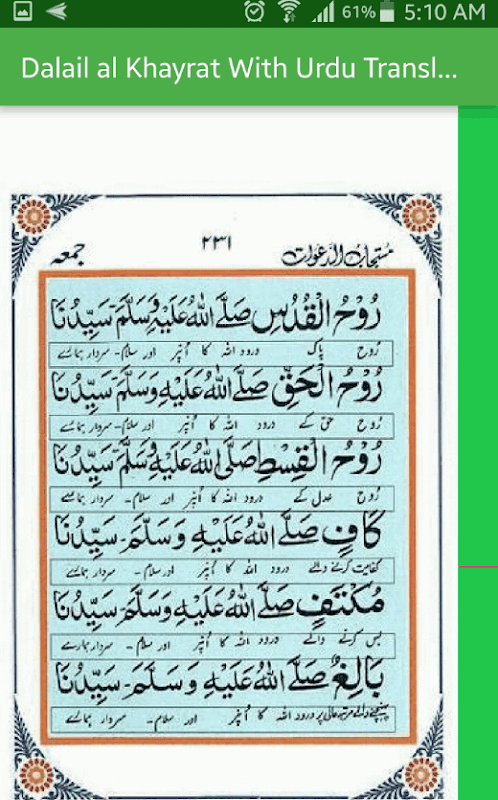 61% 5:10 AM
Dalail al Khayrat With Urdu Transl...
مستجاب الدعوات ٢٣١ جمعه
رُوْحُ الْقُدُسِ صَلَّے اللهُ عَلَيْهِ وَسَلَّمَ سَيِّدُنَا
روح پاک درود اللہ کا اُنپر اور سلام۔ سردار ہمارے
رُوْحُ الْحَقِّ صَلَّے اللهُ عَلَيْهِ وَسَلَّمَ سَيِّدُنَا
روح حق کے درود اللہ کا اُنپر اور سلام۔ سردار ہمارے
رُوْحُ الْقِسْطِ صَلَّى اللهُ عَلَيْهِ وَسَلَّمَ سَيِّدُنَا
روح عدل کے درود اللہ کا اُنپر اور سلام۔ سردار ہمارے
كَافٍ صَلَّے اللهُ عَلَيْهِ وَسَلَّمَ۔ سَيِّدُنَا
کفایت کرنے والے درود اللہ کا اُنپر اور سلام۔ سردار ہمارے
مُكْتَفٍ صَلَّے اللهُ عَلَيْهِ وَسَلَّمَ۔ سَيِّدُنَا
بس کرنے والے درود اللہ کا اُنپر اور سلام۔ سردار ہمارے
بَالِغٌ صَلَّے اللهُ عَلَيْهِ وَسَلَّمَ۔ سَيِّدُنَا
پہنچنے والے مرتبہ عالی پر درود اللہ کا اُنپر اور سلام۔ سردار ہمارے